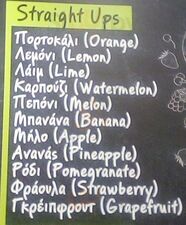 Straight Ups
Πορτοκάλι (Orange)
Λεμόνι (Lemon)
Λάιμ (Lime)
Καρπούζι (Watermelon)
Πεπόνι (Melon)
Μπανάνα (Banana)
Μήλο (Apple)
Ανανάς (Pineapple)
Ρόδι (Pomegranate)
Φράουλα (Strawberry)
Γκρέιπφρουτ (Grapefruit)